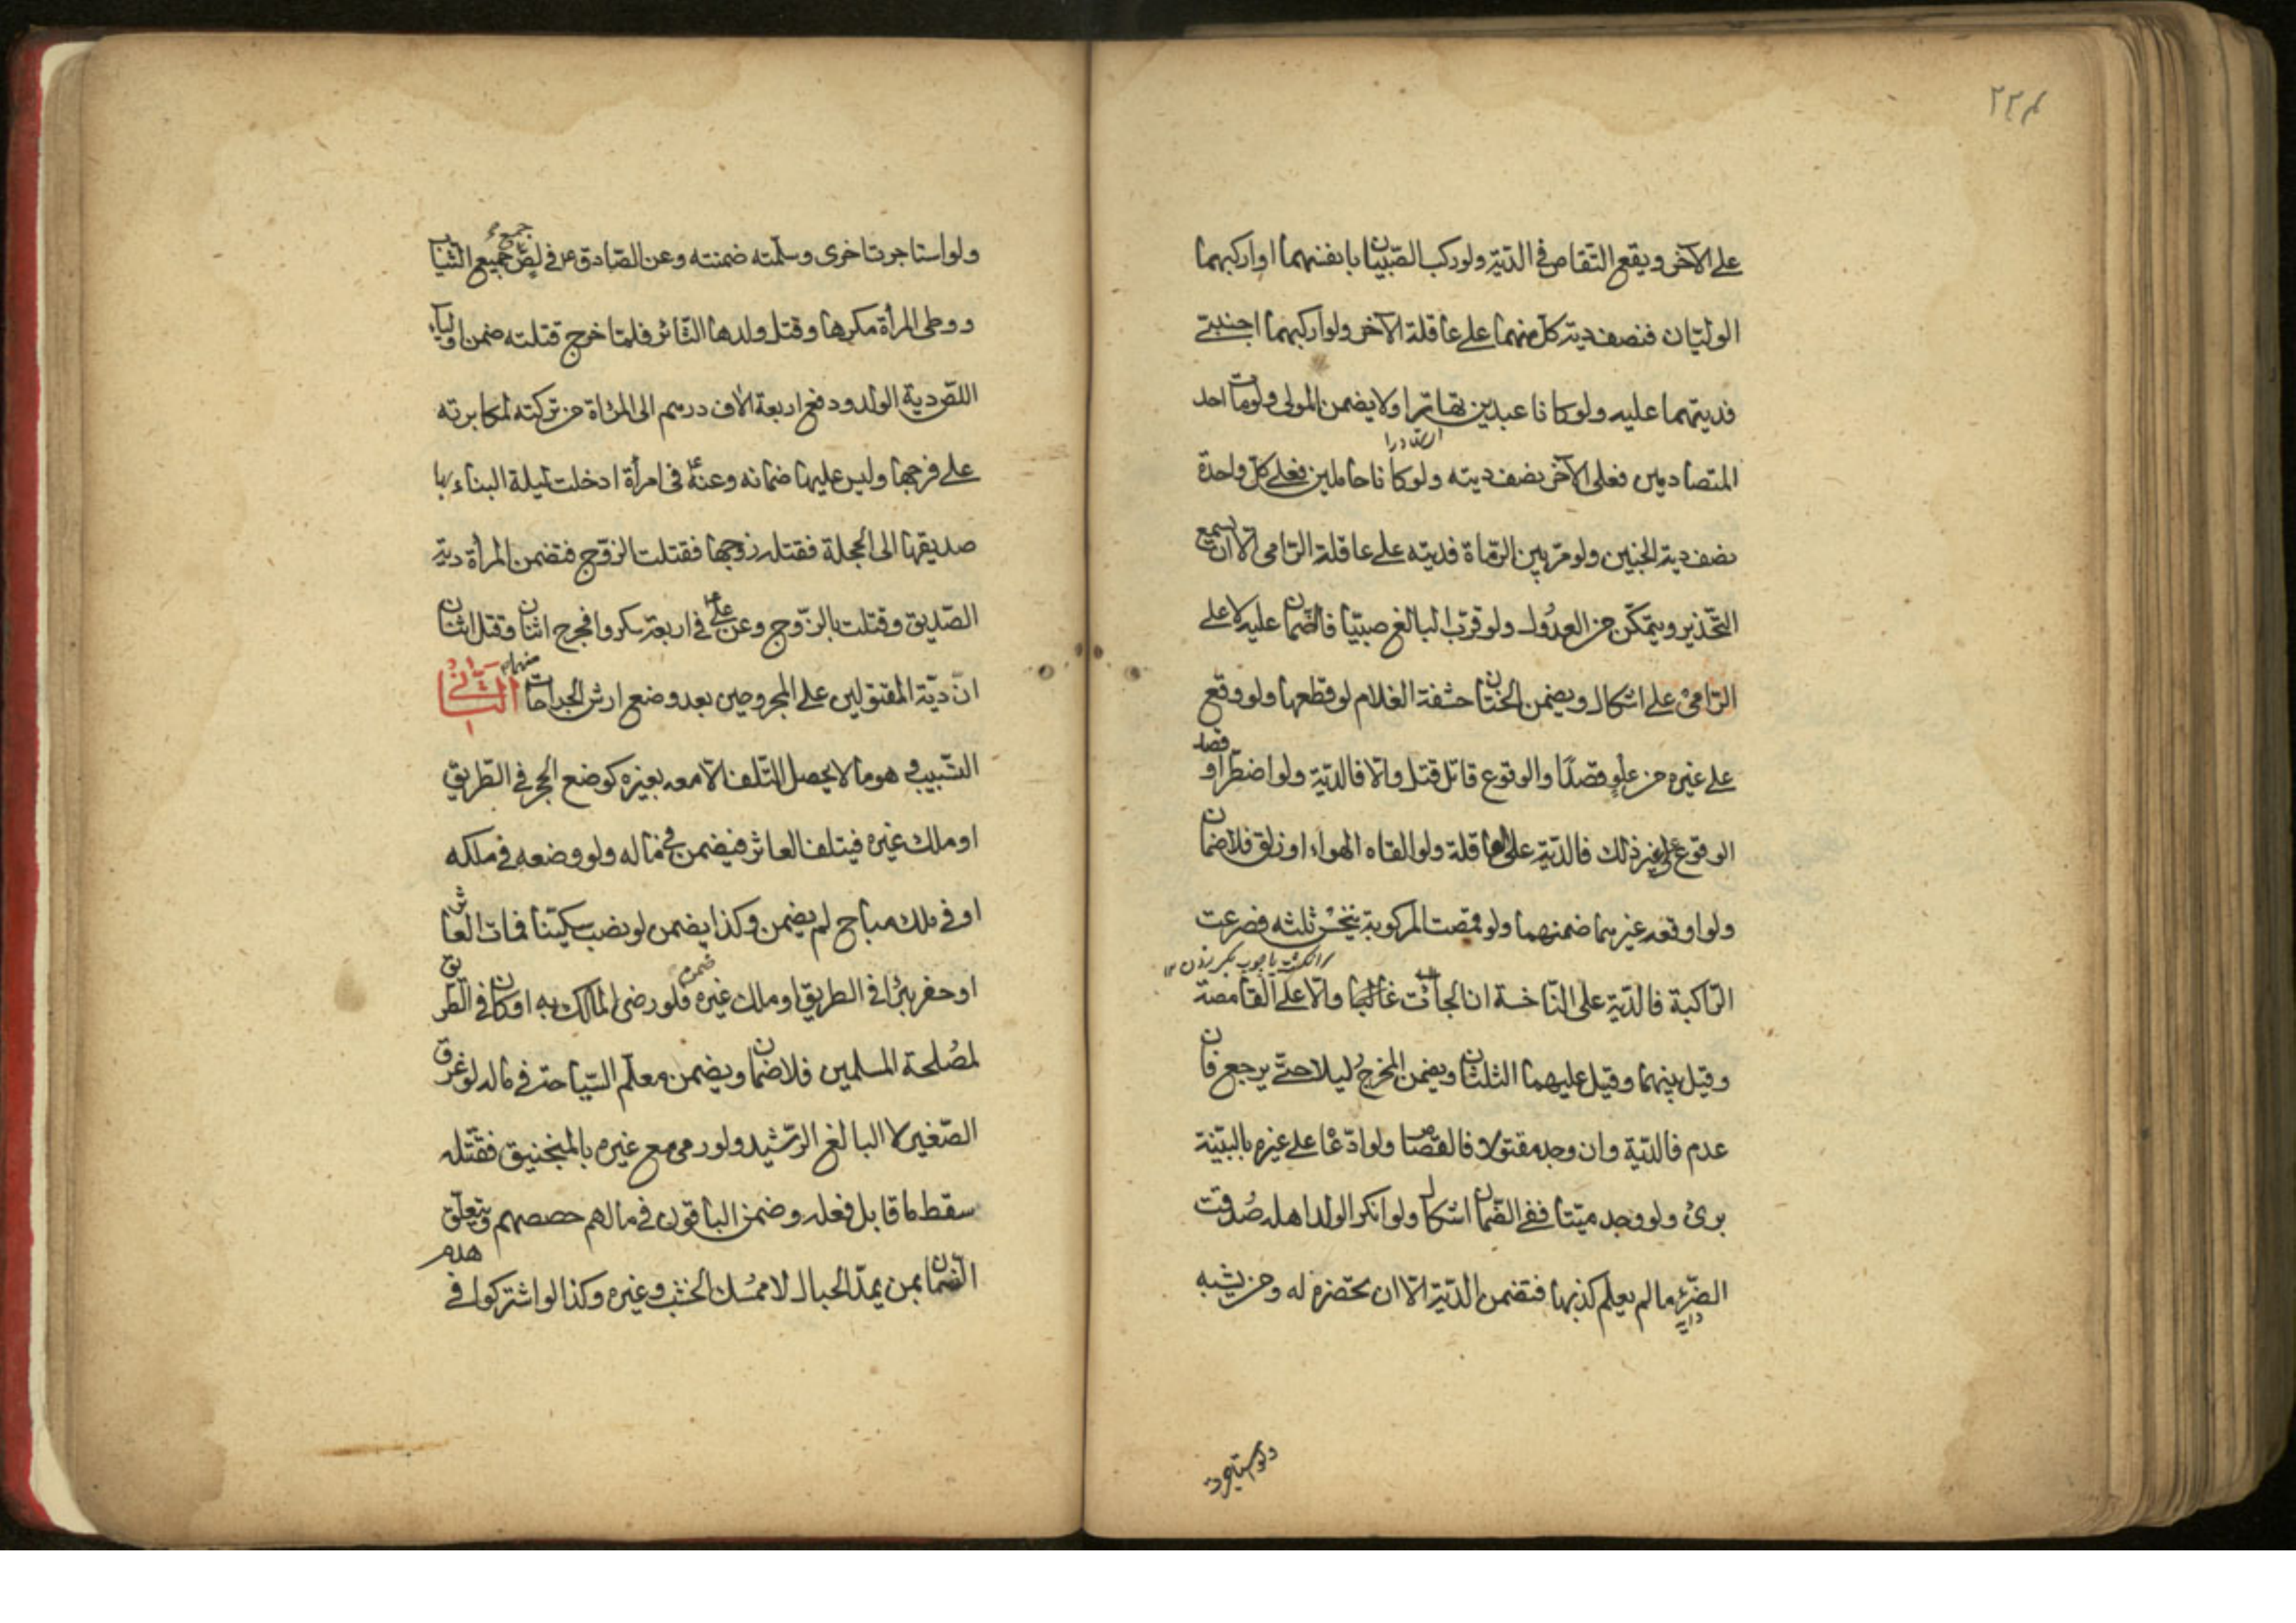 ۲۲۴
على الآخر ويقع التقاص فى الديّة ولو ركب الصّبيّان بانفسهما او اركبهما
الوليّان فنصف دية كلّ منهما على عاقلة الآخر ولو اركبهما اجنبىّ
فديتهما عليه ولو كانا عبدين تهاترا ولا يضمن المولى ولو مات احد
المتصادمين فعلى الآخر نصف ديته ولو كانا حاملين فعلى كلّ واحدة
نصف دية الجنين ولو مرّ بين الرّماة فديته على عاقلة الرّامى الّا ان يسمع
التّحذير ويتمكّن من العدُول ولو قرّب البالغ صبيّا فالضّمان عليه لا على
الرّامىْ على اشكال ويضمن الختّان حشفة الغلام لو قطعها ولو وقع
على غيره من علو قصدًا والوقوع قاتل قتل والّا فالديّة ولو اضطرّ او قصد
الوقوع لغير ذلك فالديّة على العاقلة ولو القاه الهواء او زلق فلا ضمان
ولو اوقعه غيرهما ضمنهما ولو قمصت المركوبة بنخْس ثلثه فصرعت
الرّاكبة فالديّة على النّاخسة ان الجأت غالبًا والّا على القامصة
وقيل بينهما وقيل عليهما الثلثان ويضمن المخرجُ ليلا حتّى يرجع فان
عدم فالديّة وان وجد مقتولا فالقصاص ولو ادّعا على غيره بالبيّنة
برئ ولو وجد ميّتا ففى الضّمان اشكال ولو انكر الولد اهله صُدقت
الظئر ما لم يعلم كذبها فتضمن الديّة الّا ان تحضره له و من يشبه
دايه
ولو استاجرت
ولو استاجرت اخرى وسلّمته ضمنته وعن الصّادق ع فى لصّ جمع الثّياب
ووطى المرأة مكرها وقتل ولدها الثّائر فلمّا خرج قتلته ضمن اولياء
اللصّ دية الولد ودفع اربعة الاف درهم الى المرأة من تركته لمكابرته
على فرجها وليس عليها ضمانه وعنه ع فى امرأة ادخلت ليلة البناء بها
صديقها الى الحجلة فقتله زوجها فقتلت الزّوج فتضمن المرأة دية
الصّديق وقتلت بالزّوج وعن على ع فى اربعة سكروا فجرح اثنان وقتل اثنان
انّ ديّة المقتولين على المجروحين بعد وضع ارش الجراحات منهما الثانى
التسبيب و هو ما لا يحصل التّلف الّا معه بغيره كوضع الحجر فى الطّريق
او ملك غيره فيتلف العاثر فيضمن فى ماله ولو وضعه فى ملكه
او فى ملك مباح لم يضمن وكذا يضمن لو نصب سكينّا فمات العاثر
او حفر بئرًا فى الطريق او ملك غيره فلو رضى المالك به او كان فى الطريق
لمصُلحة المسلمين فلا ضمان ويضمن معلّم السّباحة فى ماله لو غرق
الصّغير لا البالغ الرّشيد ولو رمى مع غيره بالمنجنيق فقتله
سقط ما قابل فعله وضمن الباقون فى مالهم حصصهم ويتعلّق
الضّمان بمن يمدّ الحبال لا ممسُك الخشب وغيره وكذا لو اشتركوا فى هدم